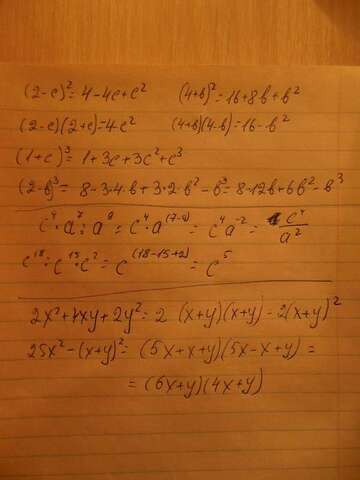 (2-c)²=4-4c+c² (4+b)²=16+8b+b²
(2-c)(2+c)=4c² (4+b)(4-b)=16-b²
(1+c)³=1+3c+3c²+c³
(2-b)³=8-3·4b+3·2·b²-b³=8-12b+6b²-b³
c⁴·a⁷:a⁹=c⁴a⁽⁷⁻⁹⁾=c⁴a⁻²=c⁴/a²
c¹⁸:c¹⁵·c²=c⁽¹⁸⁻¹⁵⁺²⁾=c⁵
2x²+4xy+2y²=2(x+y)(x+y)=2(x+y)²
25x²-(x+y)²=(5x+x+y)(5x-x+y)=
=(6x+y)(4x+y)